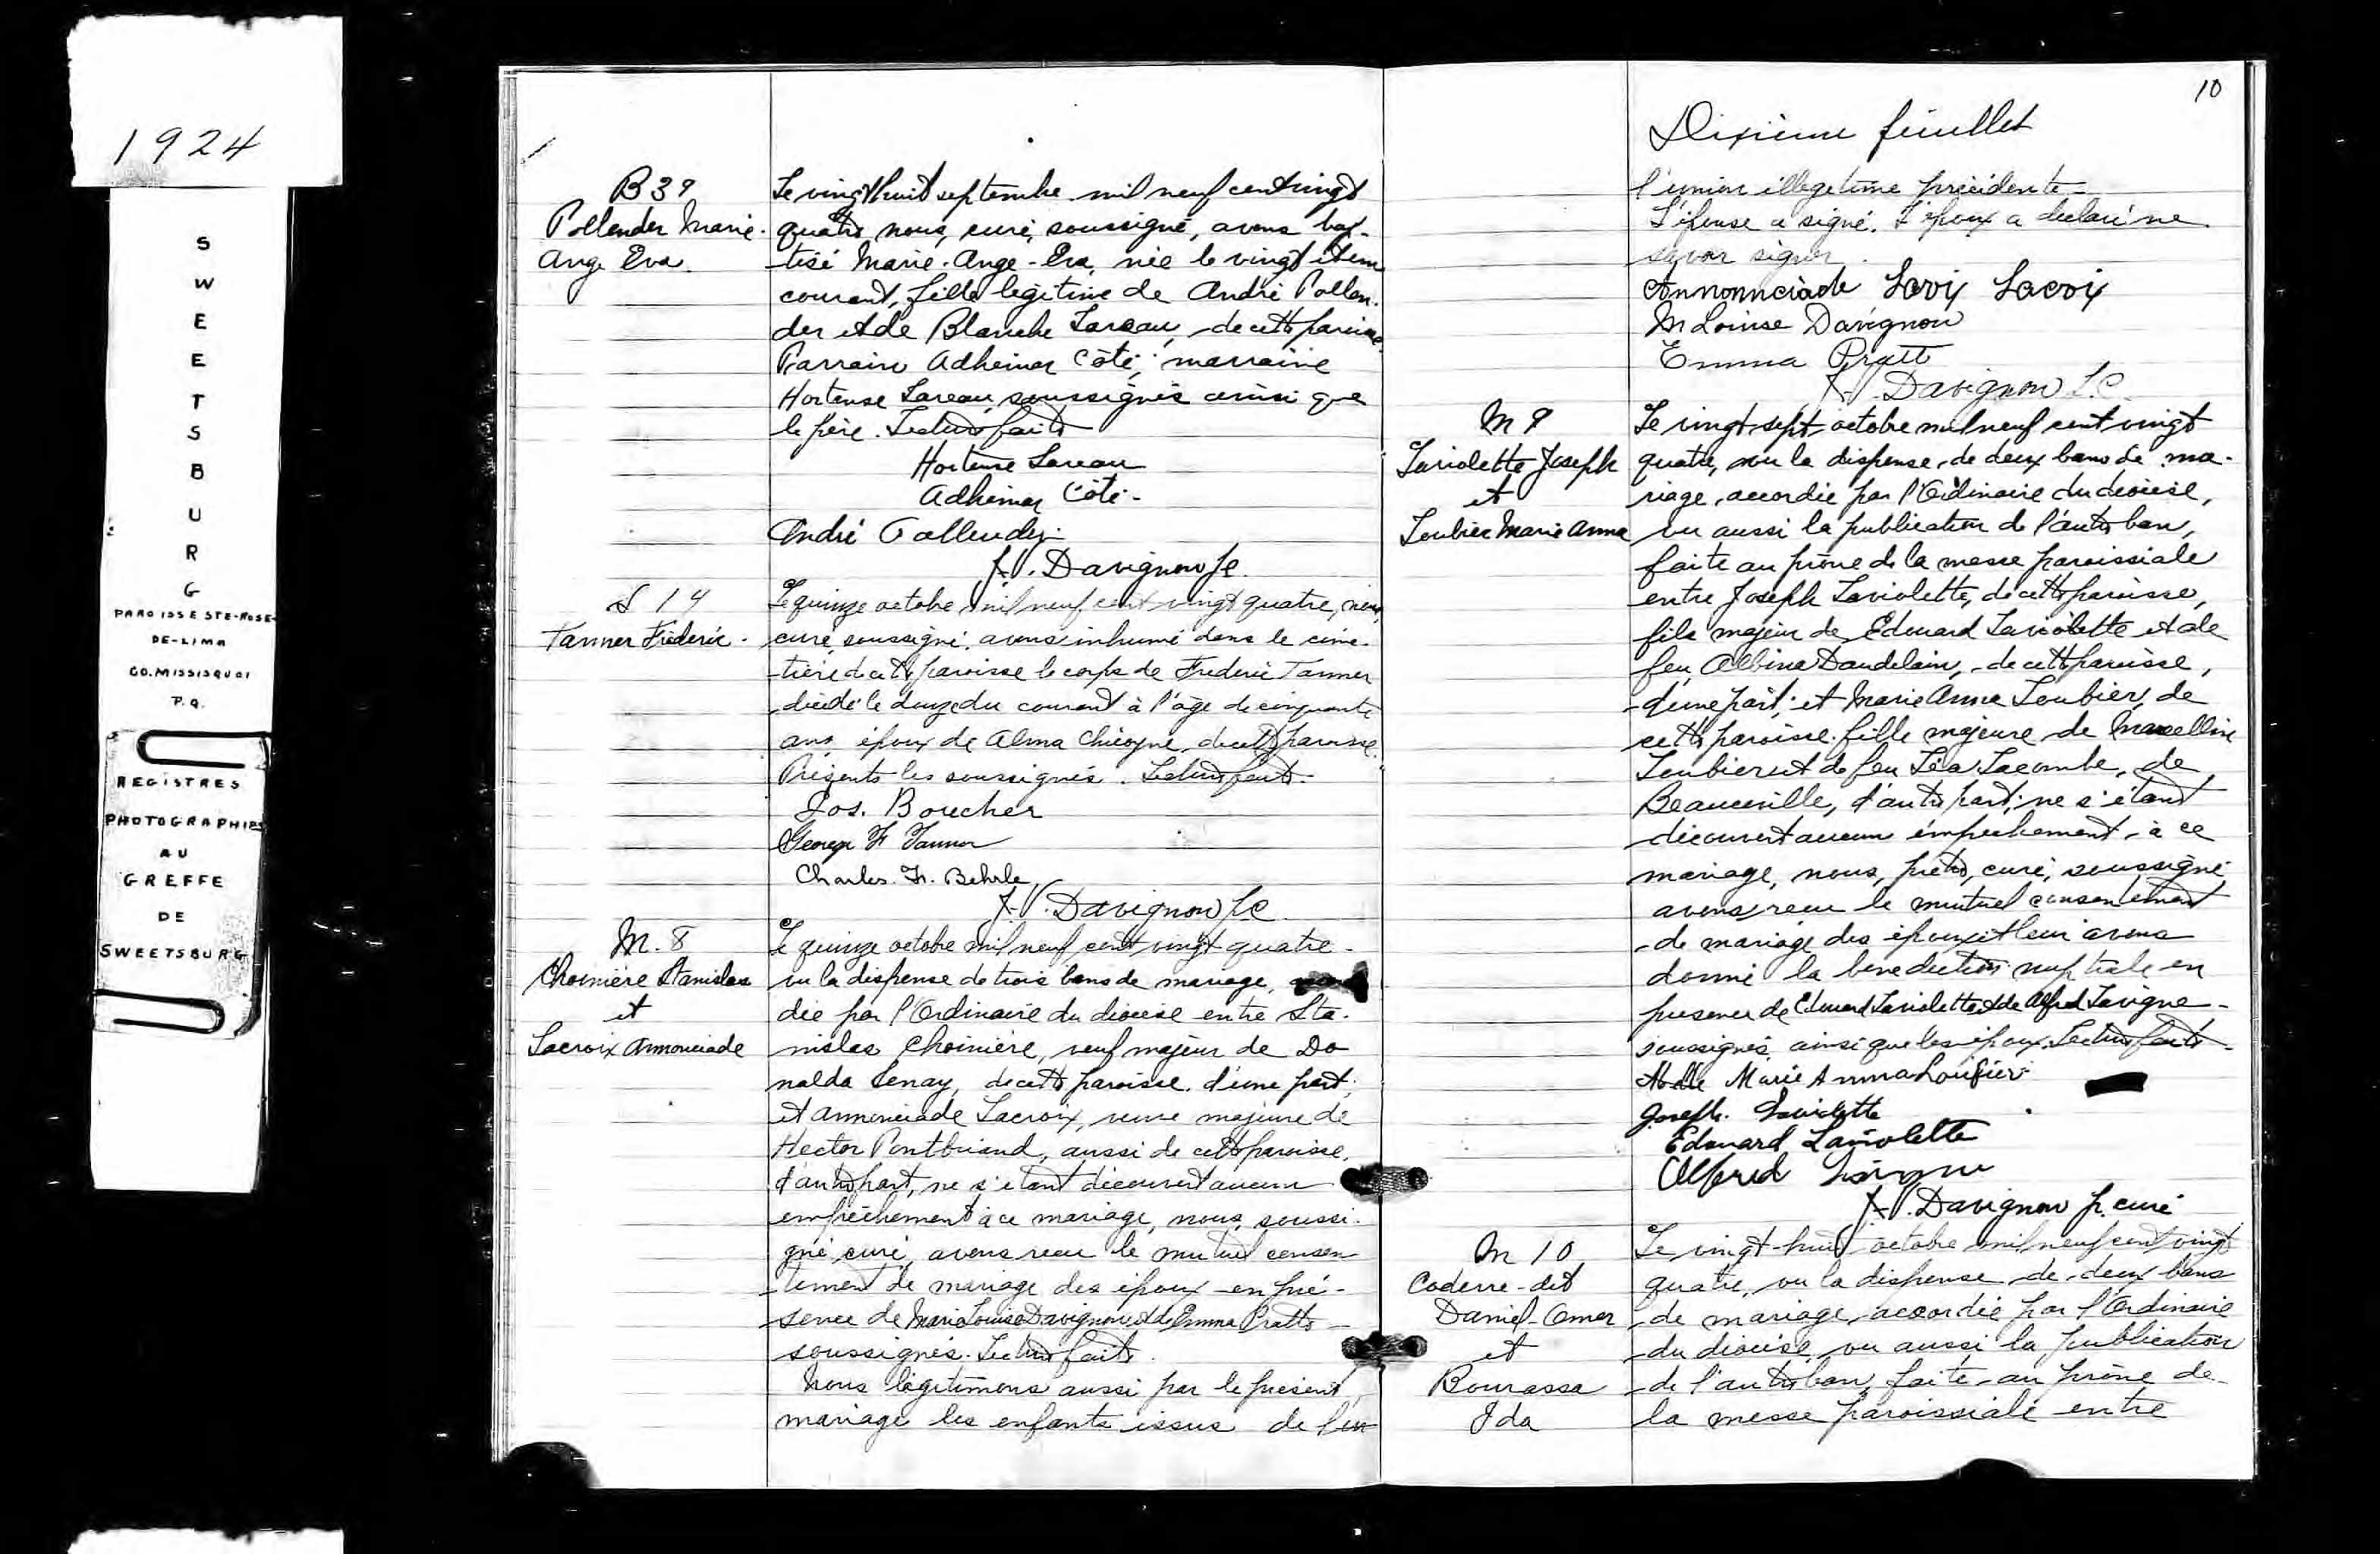 1924
S
W
E
E
T
S
B
U
R
G
PAROISSE STE-ROSE-
DE-LIMA
CO. MISSISQUOI
P.Q.
REGISTRES
PHOTOGRAPHIES
AU
GREFFE
DE
SWEETSBURG
B 39
Pollender Marie-
Ange Eva.
Le vingt huit septembre mil neuf cent vingt
quatre nous, curé, soussigné, avons bap-
tisé Marie-Ange-Eva, née le vingt et un
courant, fille légitime de André Pollen-
der et de Blanche Lareau, de cette paroisse.
Parrain Adhémar Côté; marraine
Hortense Lareau, soussignés ainsi que
le père. Lecture faite
Hortense Lareau
Adhémar Côté
André Pollender
J.N. Davignon p.c.
S 14
Tanner Frédéric
Le quinze octobre, mil neuf cent vingt quatre, nous,
curé, soussigné, avons inhumé dans le cime-
tière de cette paroisse le corps de Frédéric Tanner
décédé le douze du courant à l'âge de cinquante
ans, époux de Alma Chicoyne, de cette paroisse.
Présents les soussignés. Lecture faite.
Jos. Boucher
George F Tanner
Charles. Fr. Behrle
J.N. Davignon p.c.
M. 8
Choinière Stanislas
et
Lacroix Annonciade
Le quinze octobre mil neuf cent vingt quatre
vu la dispense de trois bans de mariage,
dée par l'Ordinaire du diocèse entre Sta-
nislas Choinière, veuf majeur de Do
nalda Benay, de cette paroisse, d'une part;
et Annonciade Lacroix, veuve majeure de
Hector Pontbriand, aussi de cette paroisse,
d'autre part, ne s'étant découvert aucun
empêchement à ce mariage, nous, soussi-
gné curé, avons reçu le mutuel consen
tement de mariage des époux en pré-
sence de Marie Louise Davignon et de Emma Pratte
soussignés. Lecture faite.
Nous légitimons aussi par le présent
mariage les enfants issus de l'un
10
Dixième feuillet
l'union illégitime précédente
L'épouse a signé. L'époux a déclaré ne
savoir signer.
Annonnciade Lacroix
M Louise Davignon
Emma Pratt
J.N. Davignon p.c.
M 9
Laviolette Joseph
et
Loubier Marie Anna
Le vingt-sept octobre mil neuf cent vingt
quatre, vu la dispense de deux bans de ma-
riage, accordée par l'Ordinaire du diocèse,
vu aussi la publication de l'autre ban,
faite au prône de la messe paroissiale
entre Joseph Laviolette, de cette paroisse,
fils majeur de Edouard Laviolette et de
feu, Albina Daudelain, de cette paroisse,
d'une part; et Marie Anna Loubier, de
cette paroisse fille majeure de Marcelline
Loubier et de feu Léa Lacombe, de
Beauceville, d'autre part; ne s'étant
découvert aucun empêchement à ce
mariage, nous, prêtre, curé, soussigné
avons reçu le mutuel consentement
de mariage des époux et leur avons
donné la bénédiction nuptiale en
présence de Edouard Laviolette et de Alfred Lavigne
soussignés, ainsi que les époux. Lecture faite
Melle Marie Anna Loubier
Joseph. Laviolette
Edouard Laviolette
Alfred Lavigne
J.N. Davignon p. curé
M 10
Coderre-dit
Daniel-Omer
et
Bourassa
Ida
Le vingt-huit octobre mil neuf cent vingt
quatre, vu la dispense de deux bans
de mariage, accordée par l'Ordinaire
du diocèse, vu aussi la publication
de l'autre ban, faite au prône de
la messe paroissiale entre